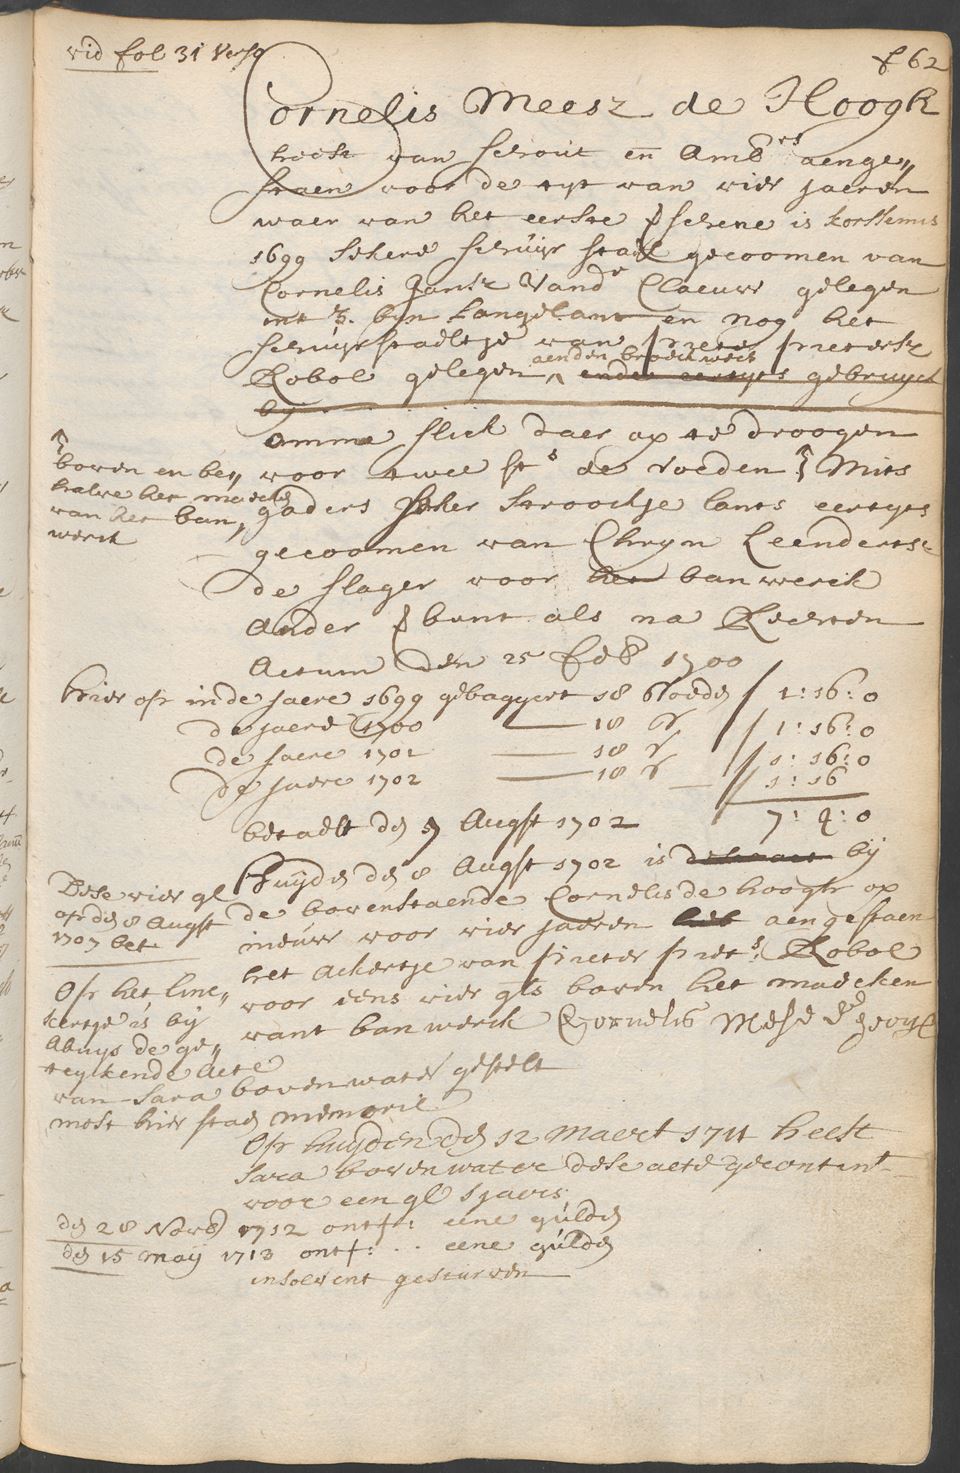 vid fol 31 verso
f 62
Cornelis Meesz de Hoogh
heeft van schout en Amb:rs aenge„
staen voor de tyt van vier jaeren
waer van het eerste schene is korstemis
1699 sekere schuijr stael gecoomen van
Cornelis Jansz Vande Claeuw gelegen
int 3. bijn Langelant en nog het
schuijrstaeltje van pieter pietersz
Robol gelegen aenden broeckwech ende eertyts gebruyct
by
omme slick daer op te droogen
voor twee st:s de roeden Mits
boven en be„
halve het maecken
van het ban„
werck
gaders seker stroockje lants eertyts
gecoomen van Chryn Leendertsz
de slager voor het banwerck
Ander bent als na Rechten
Actum den 25 feb 1700
hier op inde jaere 1699 gebaggert 18 Roede / 1:16:0
de jaere 1700 — 18 / 1:16:0
de jaere 1701 — 18 / 1:16:0
de jaere 1702 — 18 — / 1:16
7:4:0
betaelt den 7 Augst 1702
Huyden den 8 Augst 1702 is bij
de bovenstaende Cornelis de Hoogh op
nieuw voor vier jaeren aengestaen
het ackertje van pieter piet:s Robol
voor eens vier gls boven het maecken
vant banwerck Cornelis Mese de hoogh
Dese vier gl
op den 8 Augst
1707 bet
Op het line„
kertje is bij
Abuys de ge„
teykende Acte
van Sara bovenwater gestelt
most hier staen memorie
Op huyden den 12 Maert 1711 heeft
Sara bovenwater dese acte gecontent
voor een gl sjaers
den 28 Novb 1712 ontf: eene gulde
den 15 Maij 1713 ontf: .. eene gulde
insolvent gesturven